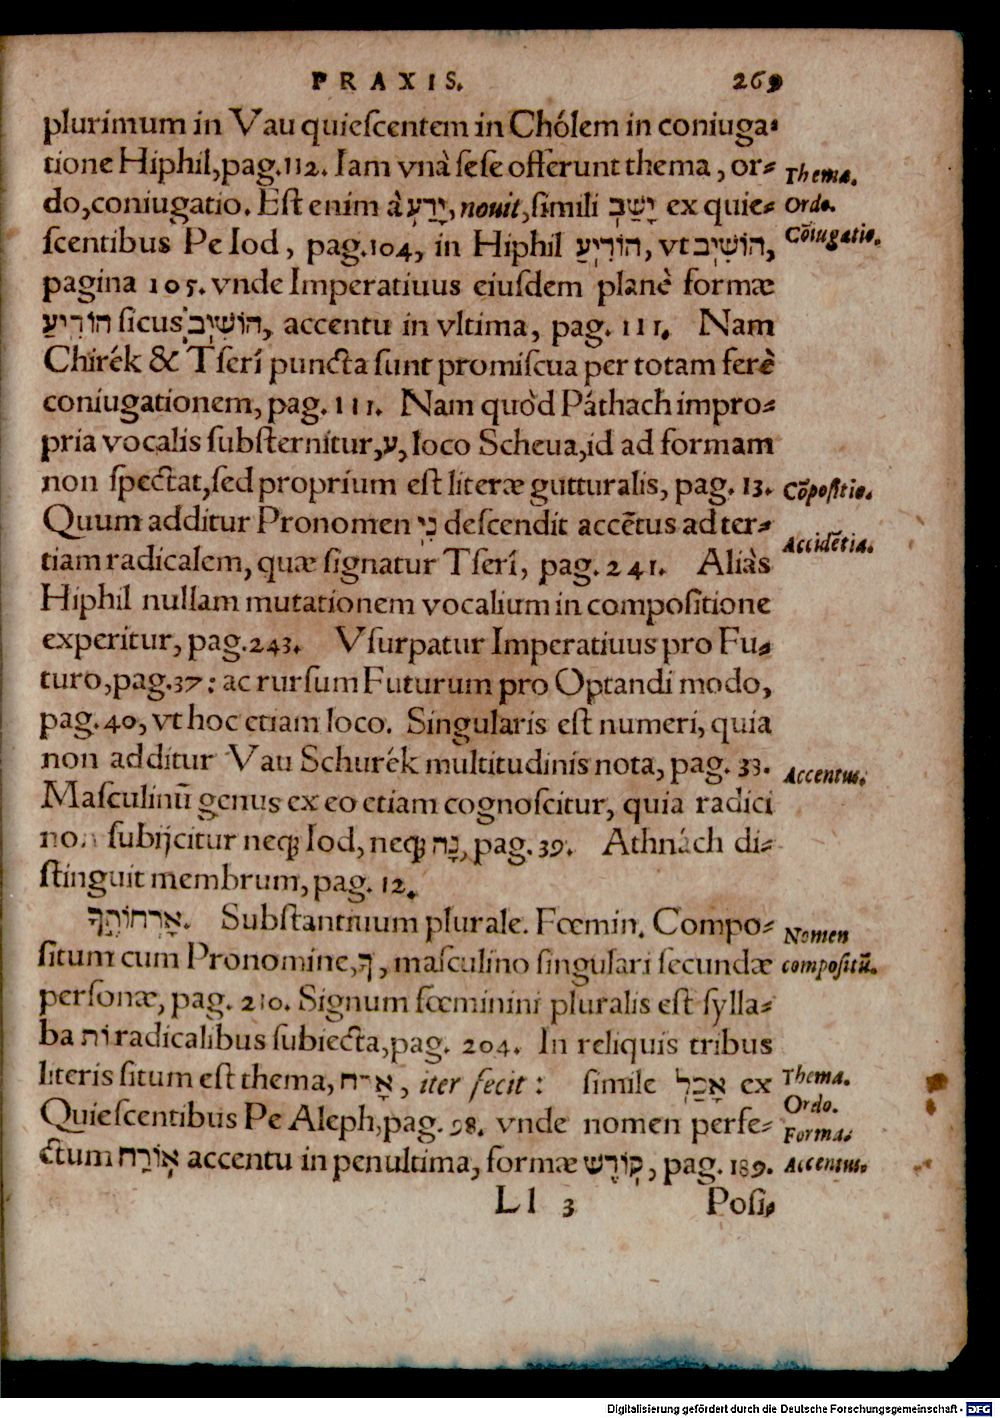 PRAXIS. 269
plurimum in Vau quieſcentem in Chólem in coniuga-
tione Hiphil, pag. 112. Iam vnà ſeſe offerunt thema, or-
Thema.
do, coniugatio. Eſt enim à יָדַע, nouit, ſimili יָשַׁב ex quie-
Ordo.
ſcentibus Pe Iod, pag. 104, in Hiphil הוֹדִיעַ, vt הוֹשִׁיב,
Cõiugatio.
pagina 105. vnde Imperatiuus eiuſdem planè formæ
הוֹדִיעַ ſicus הוֹשִׁיב, accentu in vltima, pag. 111. Nam
Chirék & Tſerí puncta ſunt promiſcua per totam ferè
coniugationem, pag. 111. Nam quòd Páthach impro-
pria vocalis ſubſternitur, ע, loco Scheua, id ad formam
non ſpectat, ſed proprium eſt literæ gutturalis, pag. 13.
Cõpoſitio.
Quum additur Pronomen נִי deſcendit accẽtus ad ter-
Accidẽtia.
tiam radicalem, quæ ſignatur Tſerí, pag. 241. Aliàs
Hiphil nullam mutationem vocalium in compoſitione
experitur, pag. 243. Vſurpatur Imperatiuus pro Fu-
turo, pag. 37: ac rurſum Futurum pro Optandi modo,
pag. 40, vt hoc etiam loco. Singularis eſt numeri, quia
non additur Vau Schurék multitudinis nota, pag. 33.
Accentus.
Maſculinũ genus ex eo etiam cognoſcitur, quia radici
non ſubijcitur neqꝫ Iod, neqꝫ נָה, pag. 39. Athnách di-
ſtinguit membrum, pag. 12.
אָרְחוֹתֶךָ. Subſtantiuum plurale. Fœmin. Compo-
Nomen
ſitum cum Pronomine, ךָ, maſculino ſingulari ſecundæ
compoſitũ.
perſonæ, pag. 210. Signum fœminini pluralis eſt ſylla-
ba וֹת radicalibus ſubiecta, pag. 204. In reliquis tribus
literis ſitum eſt thema, אָרַח, iter fecit: ſimile אָכַל ex
Thema.
Ordo.
Quieſcentibus Pe Aleph, pag. 98. vnde nomen perfe-
Forma.
ctum אוֹרַח accentu in penultima, formæ קוֹדֶשׁ, pag. 189.
Accentus.
Ll 3 Poſi-
Digitalisierung gefördert durch die Deutsche Forschungsgemeinschaft - DFG